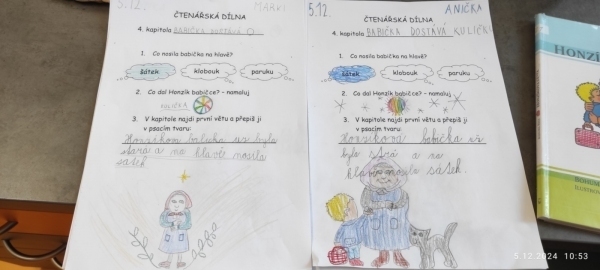 5.12.
MARKI
ČTENÁŘSKÁ DÍLNA
4. kapitola BABIČKA DOSTÁVÁ
1. Co nosila babička na hlavě?
šátek
klobouk
paruku
2. Co dal Honzík babičce? - namaluj
KULIČKA
3. V kapitole najdi první větu a přepiš ji
v psacím tvaru:
Honzíkova babička už byla
stará a na hlavě nosila
šátek
5.12.
ANIČKA
ČTENÁŘSKÁ DÍLNA
4. kapitola BABIČKA DOSTÁVÁ KULIČKU
1. Co nosila babička na hlavě?
šátek
klobouk
paruku
2. Co dal Honzík babičce? - namaluj
3. V kapitole najdi první větu a přepiš ji
v psacím tvaru:
Honzíkova babička už
byla strá a na
hlavě nosila šátek.
HONZÍ
BOHUMI
ILUSTROV
5.12.2024 10:53